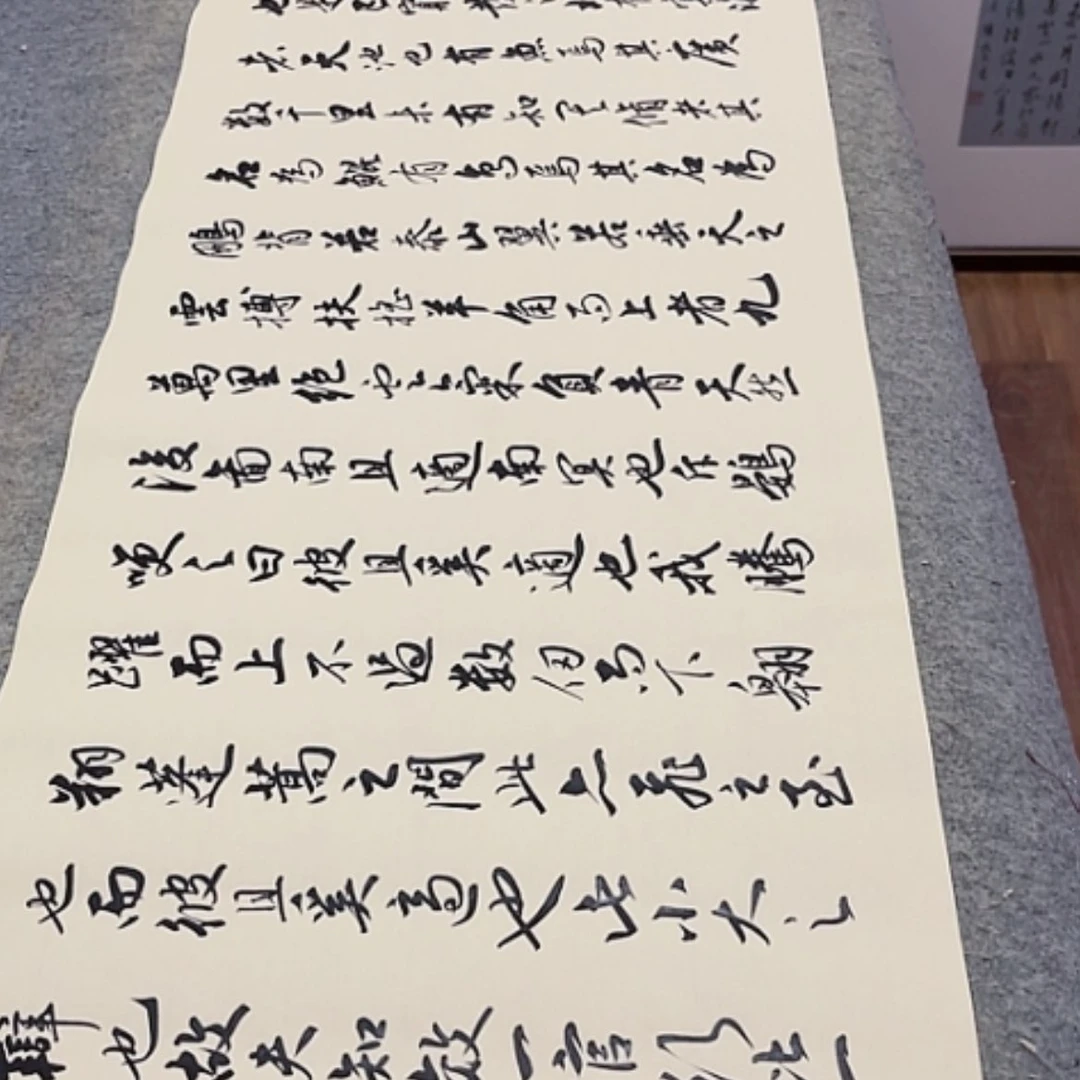 者天池也有魚焉其廣
数千里未有知其脩者其
名為鯤有鳥焉其名為
鵬背若泰山翼若垂天之
雲摶扶摇羊角而上者九
萬里绝雲氣負青天然
後圖南且適南冥也斥鴳
笑之曰彼且奚適也我騰
躍而上不過数仞而下翱
翔蓬蒿之間此亦飛之至
也而彼且奚適也此小大之
辯也故夫知效一官行比一